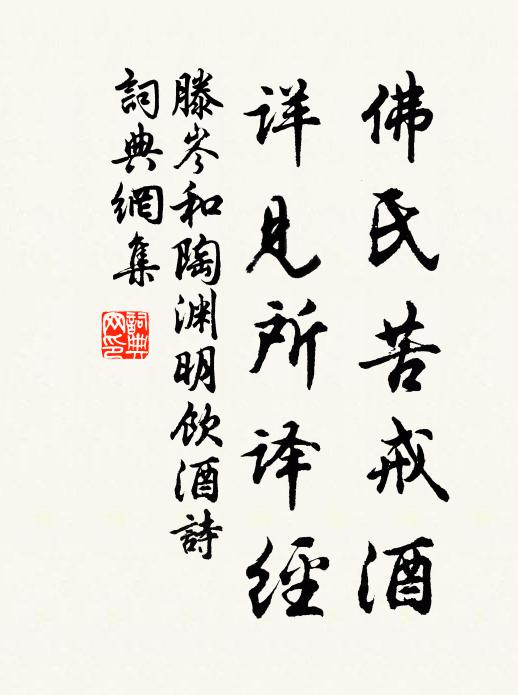 佛氏苦戒酒
详见所译經
滕岑和陶渊明飲酒詩
詞典網集
詞典网印